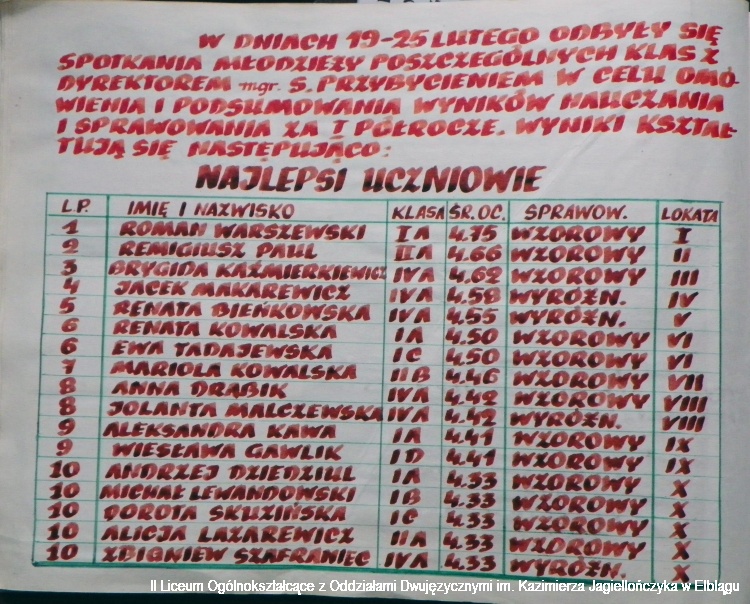 W DNIACH 19-25 LUTEGO ODBYŁY SIĘ
SPOTKANIA MŁODZIEŻY POSZCZEGÓLNYCH KLAS Z
DYREKTOREM mgr. S. PRZYBYCIENIEM W CELU OMÓ-
WIENIA I PODSUMOWANIA WYNIKÓW NAUCZANIA
I SPRAWOWANIA ZA I PÓŁROCZE. WYNIKI KSZTAŁ-
TUJĄ SIĘ NASTĘPUJĄCO:
NAJLEPSI UCZNIOWIE
L.P. IMIĘ I NAZWISKO KLASA ŚR.OC. SPRAWOW. LOKATA
1 ROMAN WARSZEWSKI IA 4.75 WZOROWY I
2 REMIGIUSZ PAUL IIA 4.66 WZOROWY II
3 BRYGIDA KAŹMIERKIEWICZ IVA 4.62 WZOROWY III
4 JACEK MAKAREWICZ IVA 4.58 WYRÓŻN. IV
5 RENATA BIEŃKOWSKA IVA 4.55 WYRÓŻN. V
6 RENATA KOWALSKA IA 4.50 WZOROWY VI
6 EWA TADAJEWSKA IC 4.50 WZOROWY VI
7 MARIOLA KOWALSKA IIB 4.46 WZOROWY VII
8 ANNA DRĄBIK IVA 4.42 WZOROWY VIII
8 JOLANTA MALCZEWSKA IVA 4.42 WYRÓŻN. VIII
9 ALEKSANDRA KAWA IA 4.41 WZOROWY IX
9 WIESŁAWA GAWLIK ID 4.41 WZOROWY IX
10 ANDRZEJ DZIEDZIUL IA 4.33 WZOROWY X
10 MICHAŁ LEWANDOWSKI IB 4.33 WZOROWY X
10 DOROTA SKUZIŃSKA IC 4.33 WZOROWY X
10 ALICJA ŁAZAREWICZ IIA 4.33 WZOROWY X
10 ZBIGNIEW SZAFRANIEC IVA 4.33 WYRÓŻN. X
II Liceum Ogólnokształcące z Oddziałami Dwujęzycznymi im. Kazimierza Jagiellończyka w Elblągu